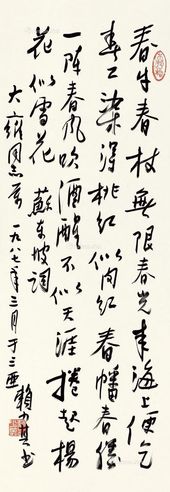 春牛春杖無限春光来海上便乞
春工染得桃红似肉红春幡春勝
一阵春风吹酒醒不似天涯捲起楊
花似雪花 蘇東坡詞
大同志属 一九八七年三月于三亞
賴少其书